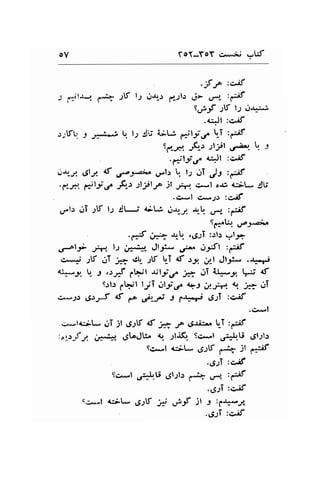 کتاب نخست ۳۵۳ــ۲۵۲ ۵۷
گفت: هرگز.
گفتم: پس حق داریم دیدن را کار چشم بدانیم و
شنیدن را کار گوش؟
گفت: البته.
گفتم: آیا می‌توانیم شاخهٔ تاك را با شمشیر و یا کارد
و یا بعضی افزار دیگر ببریم؟
گفت: البته می‌توانیم.
گفتم: ولی آن را با داس مخصوصی که برای بریدن
تاك ساخته شده است بهتر از هر افزار دیگر می‌توانیم ببریم.
گفت: درست است.
گفتم: پس باید بریدن شاخه تـــاك را کار آن داس
مخصوص بنامیم؟
جواب داد: آری، باید چنین کنیم.
گفتم: اکنون معنی سئوال پیشین را بهتر خواهــی
فهمید. سئوال این بود که آیا کار یك چیز آن کار نیست
که تنها بوسیلهٔ آن چیز می‌تواند انجام گیرد، و یا بوسیله
آن چیز به بهترین وجه می‌توان آنرا انجام داد؟
گفت: آری فهمیدم و تعریفی هم که کــردی درست
است.
گفتم: آیا معتقدی هر چیز که کاری از آن ساخته‌است
دارای قابلیتی است؟ بگذار به مثال‌های پیشین برگردیم:
گفتیم از چشم کاری ساخته است؟
گفت: آری.
گفتم: پس چشم دارای قابلیتی است؟
گفت: آری.
پرسیدم: و از گوش نیز کاری ساخته است؟
گفت: آری.